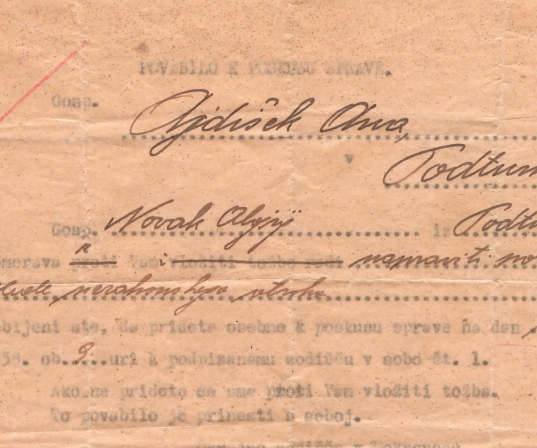 POVABILO K POSKUSU SPRAVE.
Gosp.
Ajdišek Ana,
v Podtur
Gosp. Novak Alojzij iz Podtu
namerava proti Vam i vložiti tožbo radi napraviti
nezakonskega otroka
bijeni ste, da pridete osebno k poskusu sprave na dan
38. ob 9. uri k podpisanemu sodišču v sobo št. 1.
Ako ne pridete se sme proti Vam vložiti tožba.
To povabilo je prinesti s seboj.